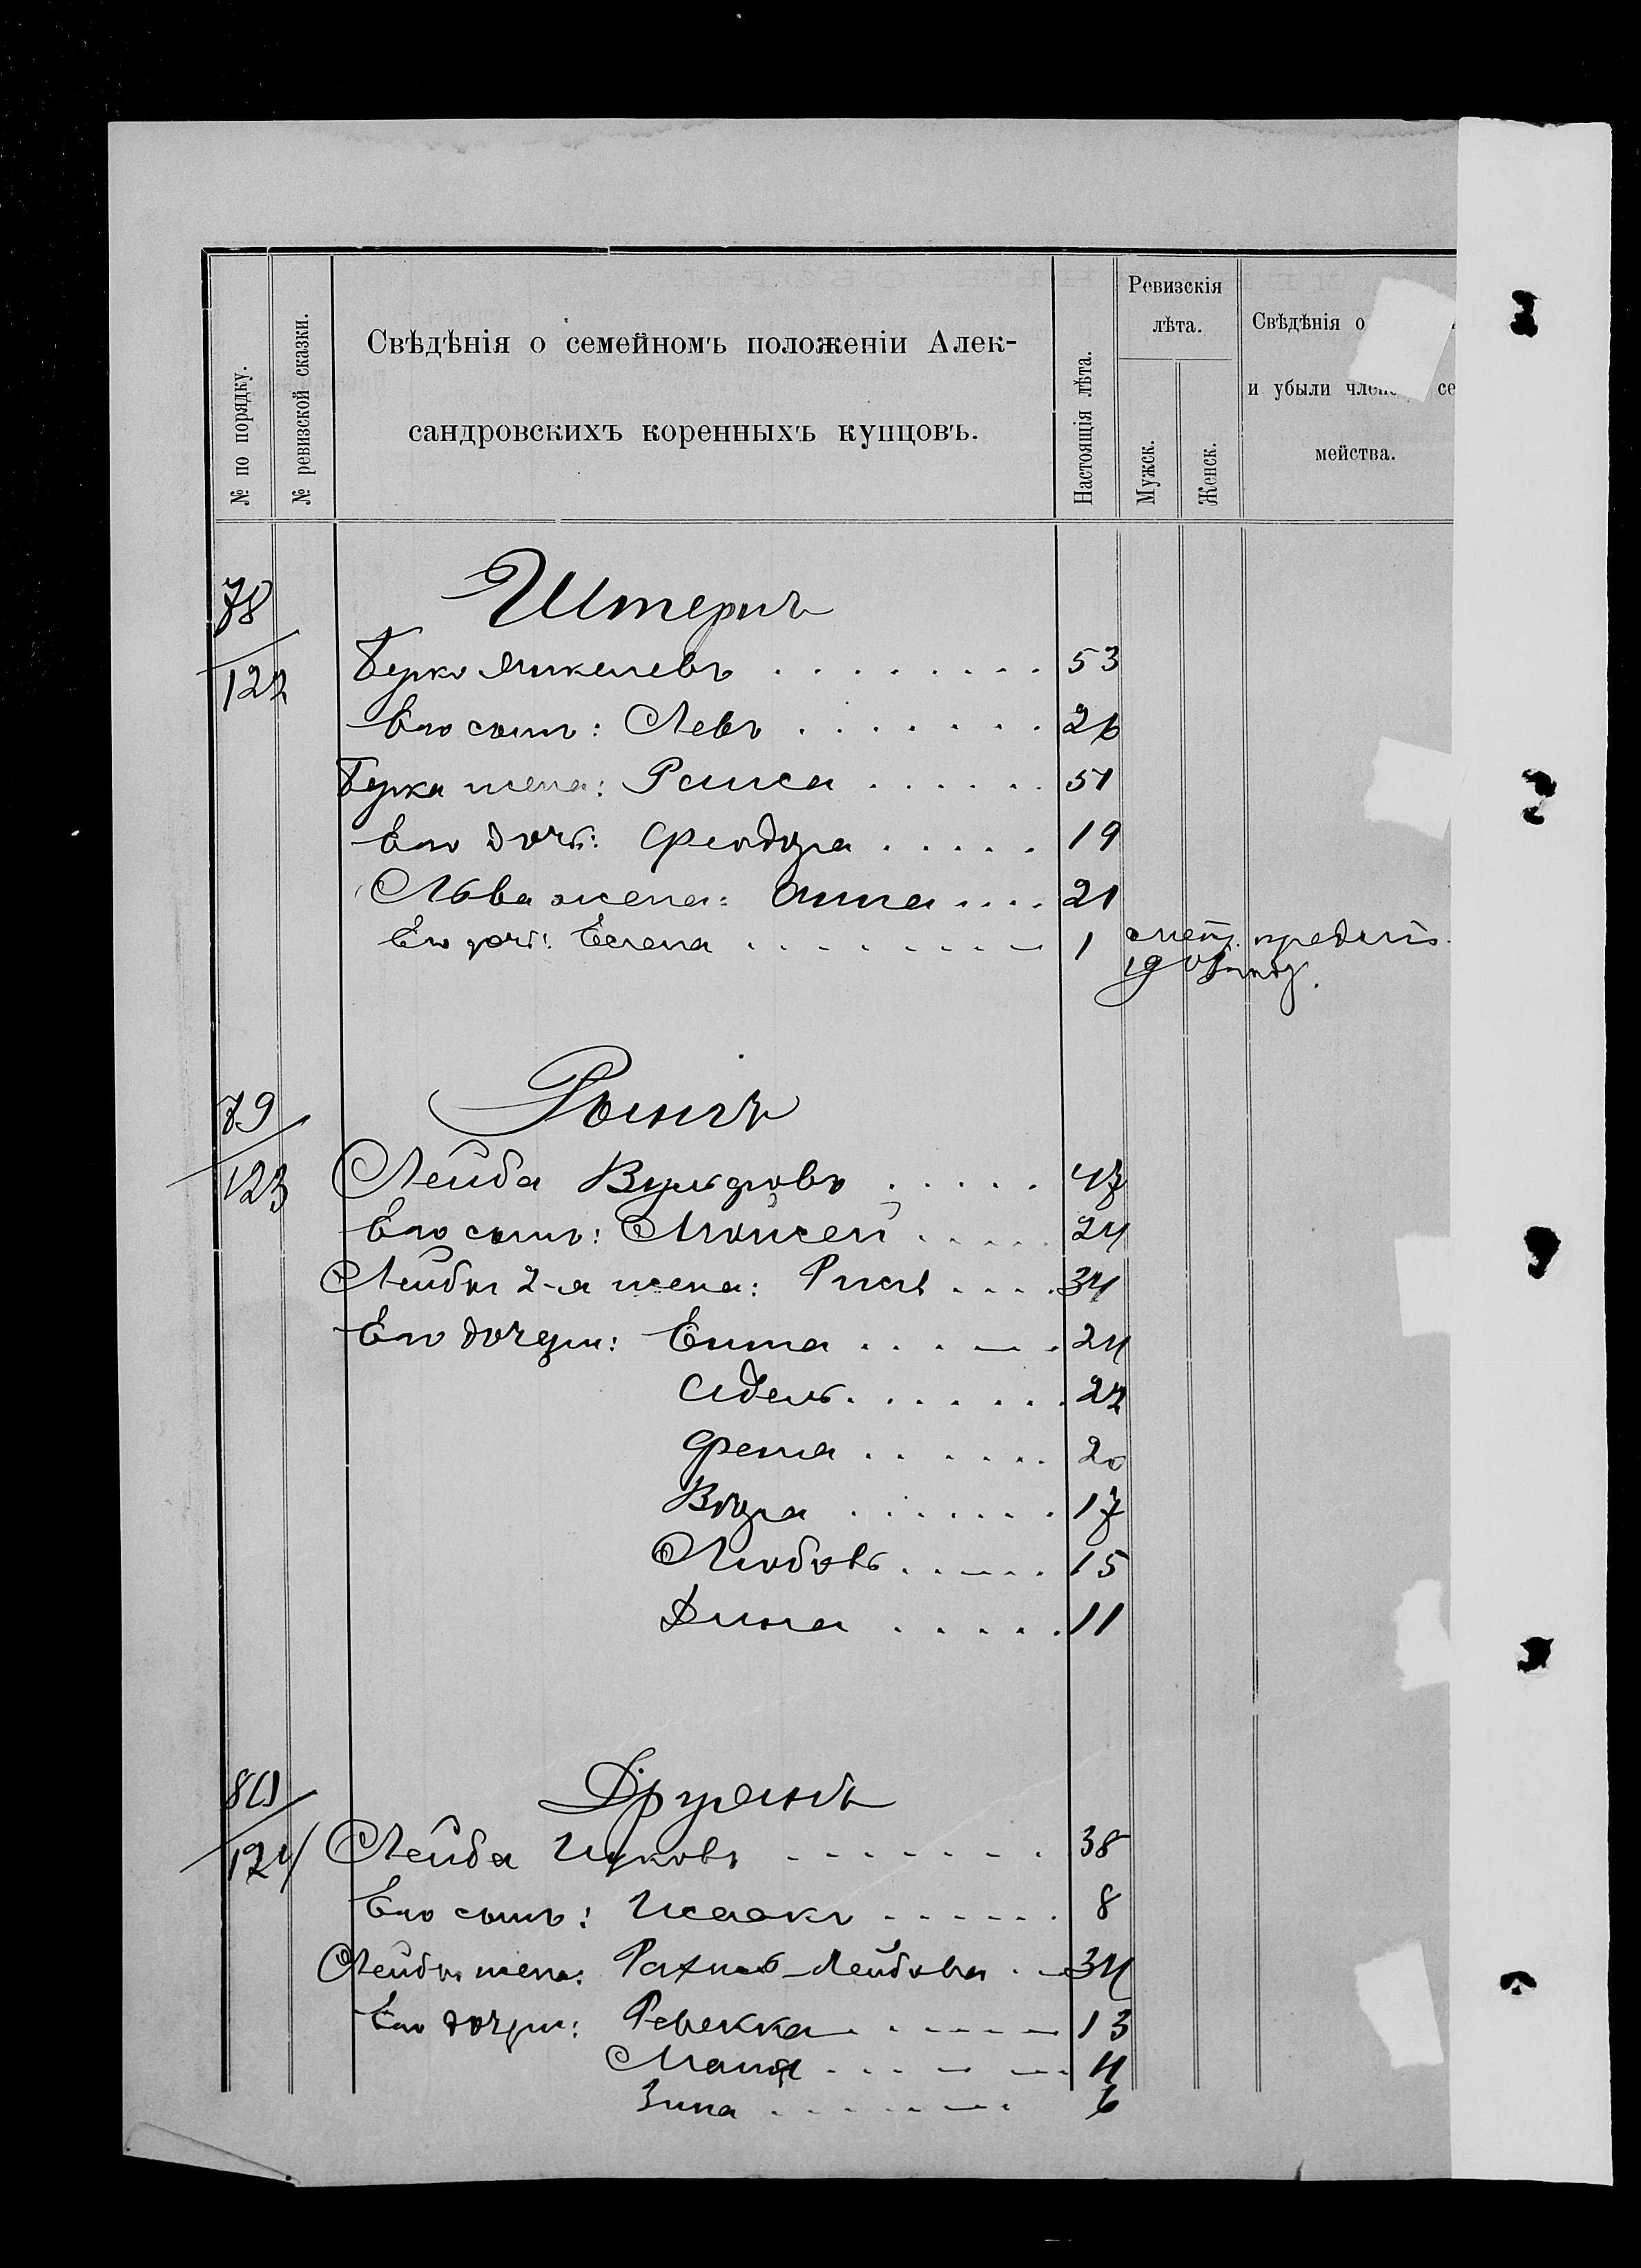 № по порядку.
№ ревизской сказки.
Свѣдѣнія о семейномъ положеніи Алек-
сандровскихъ коренныхъ купцовъ.
Настоящія лѣта.
Ревизскія
лѣта.
Мужск.
Женск.
Свѣдѣнія о
и убыли член се
мейства.
78
122
Штернъ
Берко Янкелевъ 53
Его сынъ: Левъ 26
Берка жена: Раиса 51
Его дочь: Феодора 19
Льва жена: Анна 21
Его дочь: Елена 1
79
123
Лейба Вульфовъ 47
Его сынъ: Мойсей 24
Лейбы 2-я жена: 34
Его дочери: Ента 24
Адель 22
Феня 20
Вѣра 17
Любовь 15
Дина 11
80
124
Друянъ
Лейба Ицковъ 38
Его сынъ: Исаакъ 8
Лейбы жена: Рахиль Лейбова 34
Его дочери: Ревекка 13
Маня 11
Зина 6